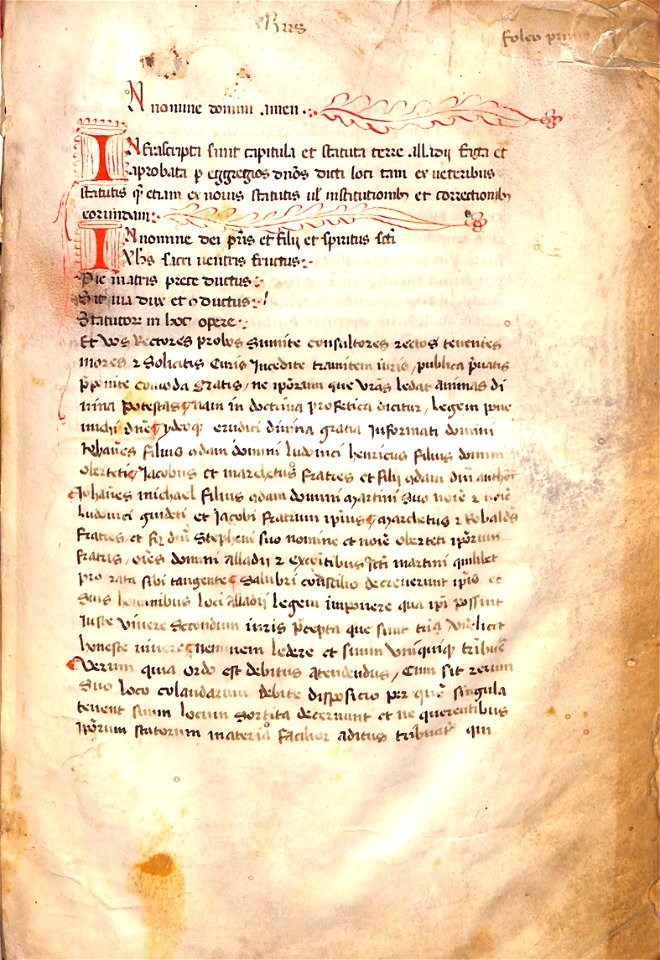 folio primo
N nomine domini amen
INfrascripta sunt capitula et statuta terre alladij facta et
aprobata p eggregios dnōs dicti loci tam ex veteribus
statutis qz etiam ex novis statutis ul institutionib et correctionib
eorundam
IN nomine dei pris et filij et spiritus scti
Yhs sacri ventris fructus
Pie matris prece ductus
Sit via dux et 9ductus
Statutor in hoc opere
Et vos Rectores probos sumite consultores rectos tenentes
mores 2 Solicitis curis incedite tramitem iuris publica pvatis
pponite comoda gratis, ne iporum que vras ledat animas di
vina potestas nam in doctrina profetica dicitur, legem pone
michi dne ydeoqz eruditi divina gratia informati domini
Iohanes filius qdam domini ludovici henricus filius domini
oberteti Jacobus et marchetus fratres et filij qdam dni
Johanes michael filius qdam domini martini suo noie 2 noie
ludovici guideti et Jacobi fratrum ipius marchetus 2
fratres et fij dni Stepheni suo nomine et noie oberteti iporum
fratris, oies domini alladij 2 exceptibus scti martini quilibet
pro rata sibi tangente Salubri consilio decreverunt ipis et
suis hominibus loci alladij legem imponere qua ipi possint
iuste vivere secondum iuris pcepta que sunt tria videlicet
honeste vivere neminem ledere et suum unicuiqz tribue
Verum quia ordo est debitus atendendus, Cum sit rerum
suo loco colandarum debite dispositio per que singula
tenent suum locum sortita decernunt et ne querentibus
iporum statorum materia facilior aditus tribuat qui